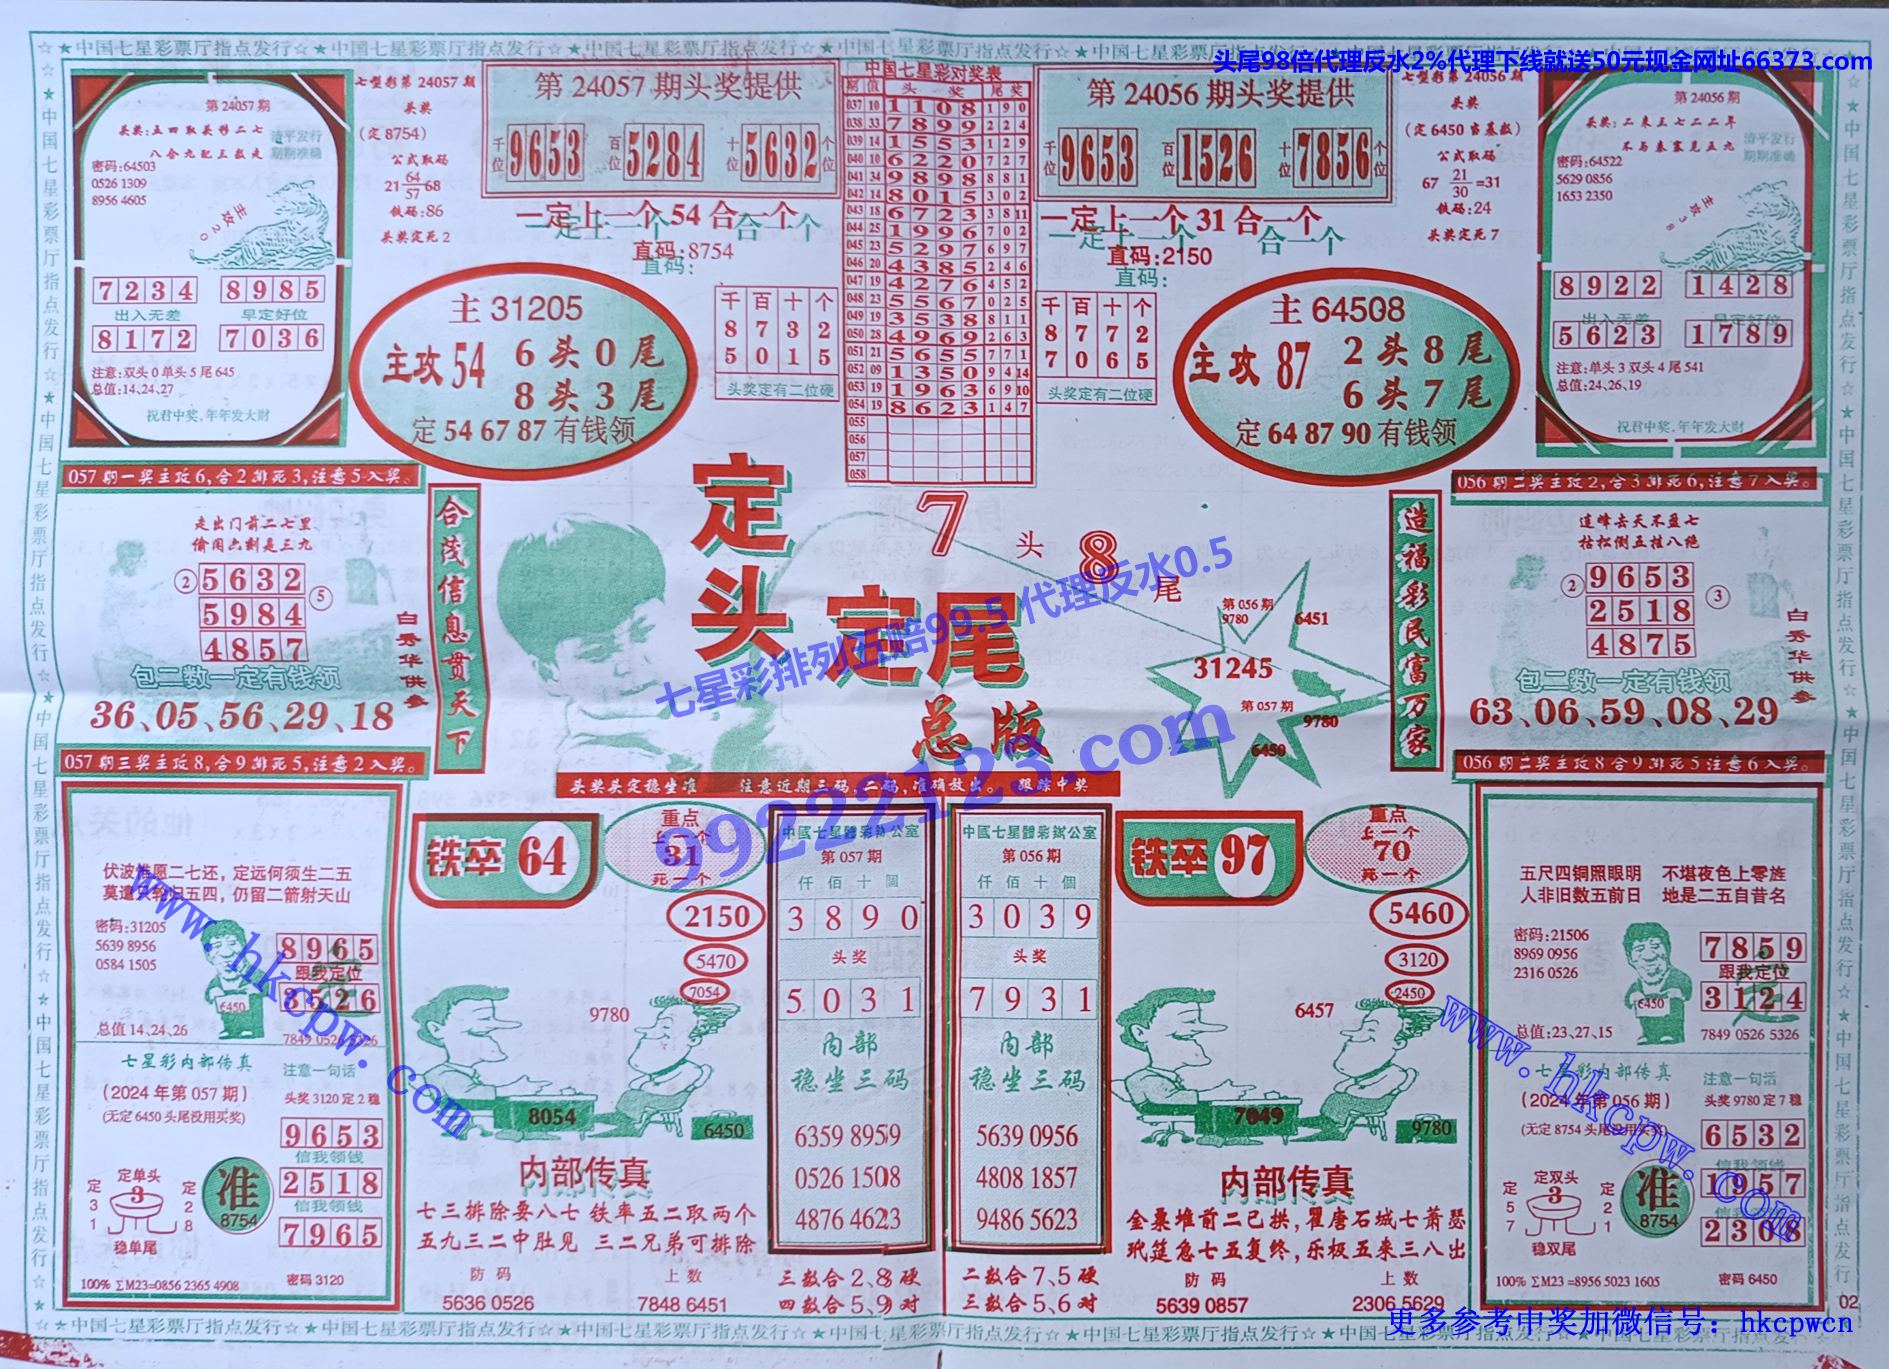 头尾98倍代理反水2%代理下线就送50元现金网址66373.com
☆★中国七星彩票厅指点发行☆★中国七星彩票厅指点发行☆★中国七星彩票厅指点发行☆★中国七星彩票厅指点发行☆
第 24057 期
头奖:五四取头移二七
八合九配三数走
清平发行
期期准确
密码:64503
0526 1309
8956 4605
主攻20
7234 8985
出入无差 早定好位
8172 7036
注意:双头 0 单头 5 尾 645
总值:14、24、27
祝君中奖,年年发大财
七型彩第 24057 期
头奖
(定 8754)
公式取码
21 64/57 68
铁码:86
头奖定死 2
第 24057 期头奖提供
千位 9653 百位 5284 十位 5632 个位
一定上一个 54 合一个
直码:8754
主 31205
主攻 54 6 头 0 尾
8 头 3 尾
定 54 67 87 有钱领
千百十个
8732
5015
头奖定有二位硬
中国七星彩对奖表
期 值 头奖 尾奖
037 10 1108 190
038 33 7899 224
039 14 1553 129
040 10 6220 727
041 34 9898 881
042 14 8015 302
043 18 6723 3811
044 25 1996 702
045 23 5297 697
046 20 4385 246
047 19 4276 452
048 23 5567 025
049 19 3538 811
050 28 4969 263
051 21 5655 771
052 09 1350 9414
053 19 1963 6910
054 19 8623 147
055
056
057
058
第 24056 期头奖提供
千位 9653 百位 1526 十位 7856 个位
一定上一个 31 合一个
直码:2150
千百十个
8772
7065
头奖定有二位硬
主 64508
主攻 87 2 头 8 尾
6 头 7 尾
定 64 87 90 有钱领
七型彩第 24056 期
头奖
(定 6450 当基数)
公式取码
67 21/30 =31
铁码:24
头奖定死 7
第 24056 期
头奖:二来三七二二年
不与秦塞见五九
清平发行
期期准确
密码:64522
5629 0856
1653 2350
主攻38
8922 1428
出入无差 早定好位
5623 1789
注意:单头 3 双头 4 尾 541
总值:24、26、19
祝君中奖,年年发大财
057 期一奖主攻 6,合 2 排死 3,注意 5 入奖。
走出门前二七里
偷闲出割是三九
② 5632 ⑤
5984
4857
包二数一定有钱领
36、05、56、29、18
白秀华供参
合茂信息贯天下
定头定尾
总版
7 头 8 尾
七星彩排列五赔99.5 代理反水0.5
99222123.com
第 056 期
9780
6451
31245
第 057 期
9780
6450
造福彩民富万家
056 期二奖主攻 2,合 3 排死 6,注意 7 入奖。
连峰去天不盈七
枯松倒五挂八绝
② 9653 ③
2518
4875
包二数一定有钱领
63、06、59、08、29
白秀华供参
057 期三奖主攻 8,合 9 排死 5,注意 2 入奖。
头奖头定稳坐准 注意近期三码,二码,准确放出。 跟踪中奖
056 期二奖主攻 8 合 9 排死 5 注意 6 入奖。
伏波惟愿二七还，定远何须生二五
莫遣只轮归五四，仍留二箭射天山
密码:31205
5639 8956
0584 1505
6450
8965
跟我定位
3526
总值 14、24、26
7849 0526 5326
七星彩内部传真
(2024 年第 057 期)
(无定 6450 头尾没用买奖)
注意一句话
头奖 3120 定 2 稳
9653
信我领钱
2518
信我领钱
7965
定单头
定31 3 定28
稳单尾
准
8754
100% ∑M23=0856 2365 4908
密码 3120
铁卒 64
重点
上一个
31
死一个
2150
5470
7054
9780
8054
6450
内部传真
七三排除要八七 铁率五二取两个
五九三二中肚见 三二兄弟可排除
防 码 上 数
5636 0526 7848 6451
中國七星體彩辦公室
第 057 期
仟佰十個
3890
头奖
5031
内部
稳坐三码
6359 8959
0526 1508
4876 4623
三数合 2、8 硬
四数合 5、9 对
中國七星體彩辦公室
第 056 期
仟佰十個
3039
头奖
7931
内部
稳坐三码
5639 0956
4808 1857
9486 5623
二数合 7、5 硬
三数合 5、6 对
铁卒 97
重点
上一个
70
死一个
5460
3120
2450
6457
7049
9780
内部传真
金粟堆前二已拱，瞿唐石城七萧瑟
玳筵急七五复终，乐极五来三八出
防 码 上 数
5639 0857 2306 5629
五尺四铜照眼明 不堪夜色上零旌
人非旧数五前日 地是二五自昔名
密码:21506
8969 0956
2316 0526
6450
7859
跟我定位
3124
总值:23、27、15
7849 0526 5326
七星彩内部传真
(2024 年第 056 期)
(无定 8754 头尾没用买奖)
注意一句话
头奖 9780 定 7 稳
6532
信我领钱
1957
信我领钱
2308
定双头
定57 3 定21
稳双尾
准
8754
100% ∑M23 =8956 5023 1605
密码 6450
www.hkcpw.com
www.hkcpw.com
02
更多参考中奖加微信号：hkcpwcn
☆★中国七星彩票厅指点发行☆★中国七星彩票厅指点发行☆★中国七星彩票厅指点发行☆★中国七星彩票厅指点发行☆